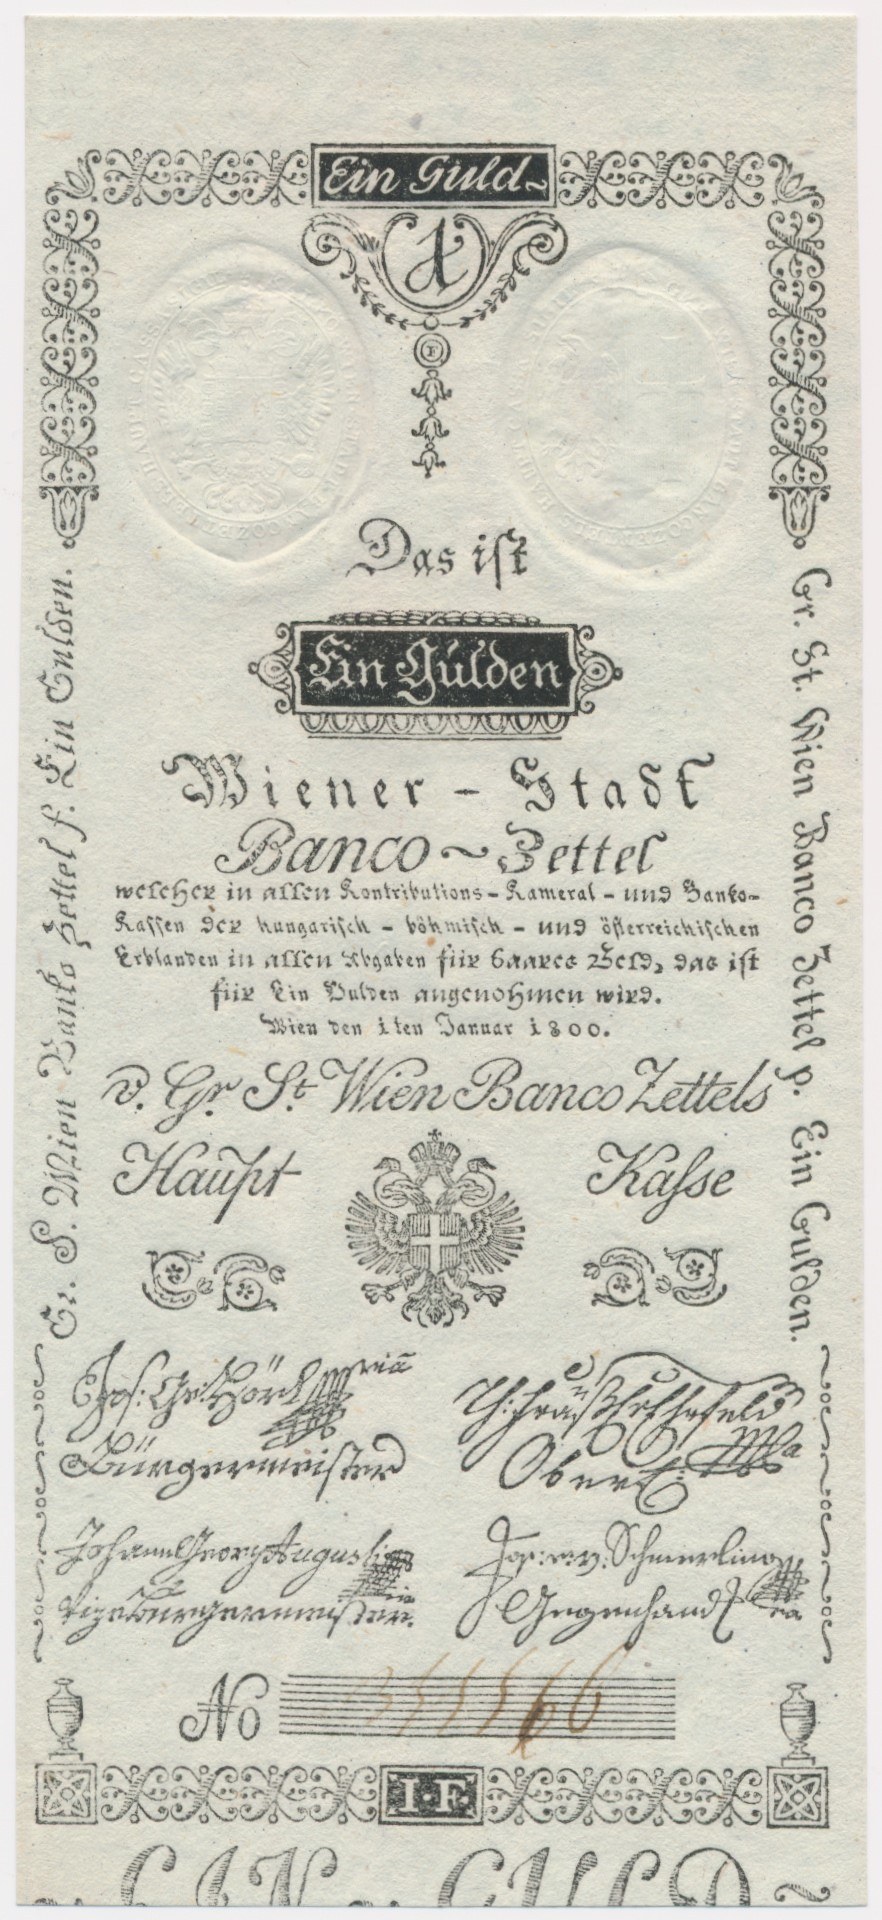 Ein Guld~
1
F
Das ist
Ein Gulden
Wiener - Stadt
Banco ~ Zettel
welcher in allen Kontributions - Kameral - und Banko-
Kassen der hungarisch - böhmisch - und österreichischen
Erblanden in allen Abgaben für baares Geld, das ist
für Ein Gulden angenohmen wird.
Wien den 1ten Januar 1800.
v. Gr. St. Wien Banco Zettels
Haupt Kasse
Gr. S. Wien Banko Zettel f. Ein Gulden.
Gr. St. Wien Banco Zettel p. Ein Gulden.
Jos: Hörl
Bürgermeister
Ober
Johann Georg Augusti
Vizebürgermeister.
Jos: v: Schmerling
Gegenhand
No 66
I·F.
EIN GULD~